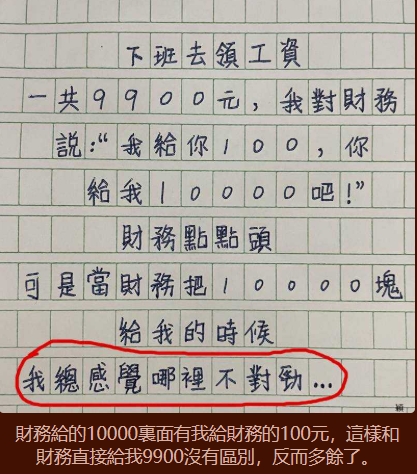 下班去領工資
一共9900元，我對財務
說：“我給你100，你
給我10000吧！”
財務點點頭
可是當財務把10000塊
給我的時候
我總感覺哪裡不對勁...
穎
財務給的10000裏面有我給財務的100元，這樣和
財務直接給我9900沒有區別，反而多餘了。